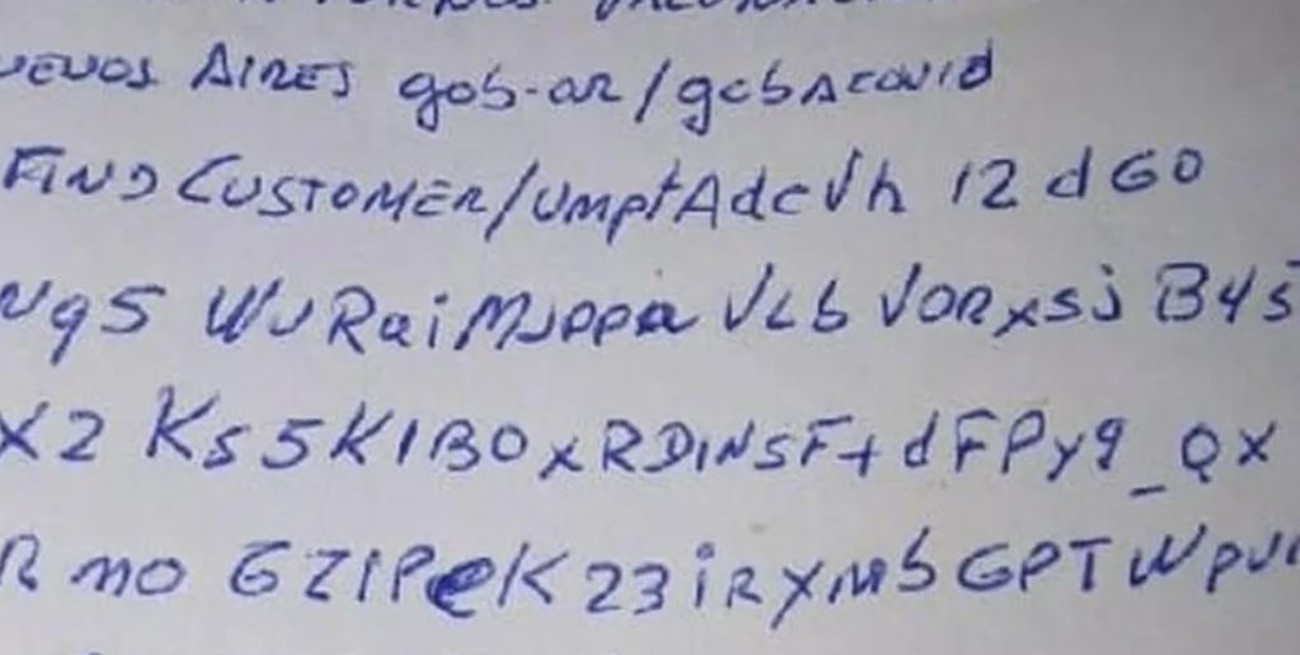 AIRES gob-ar/gcbacovid
FIND CUSTOMER/UmptAdcVh 12 d G0
Ng5 WJRaiMJppa VLb VORxsj B45
X2 Ks5K1B0xRDINSF+dFPy9_QX
R mo GZIPeK23iRXMbGPT